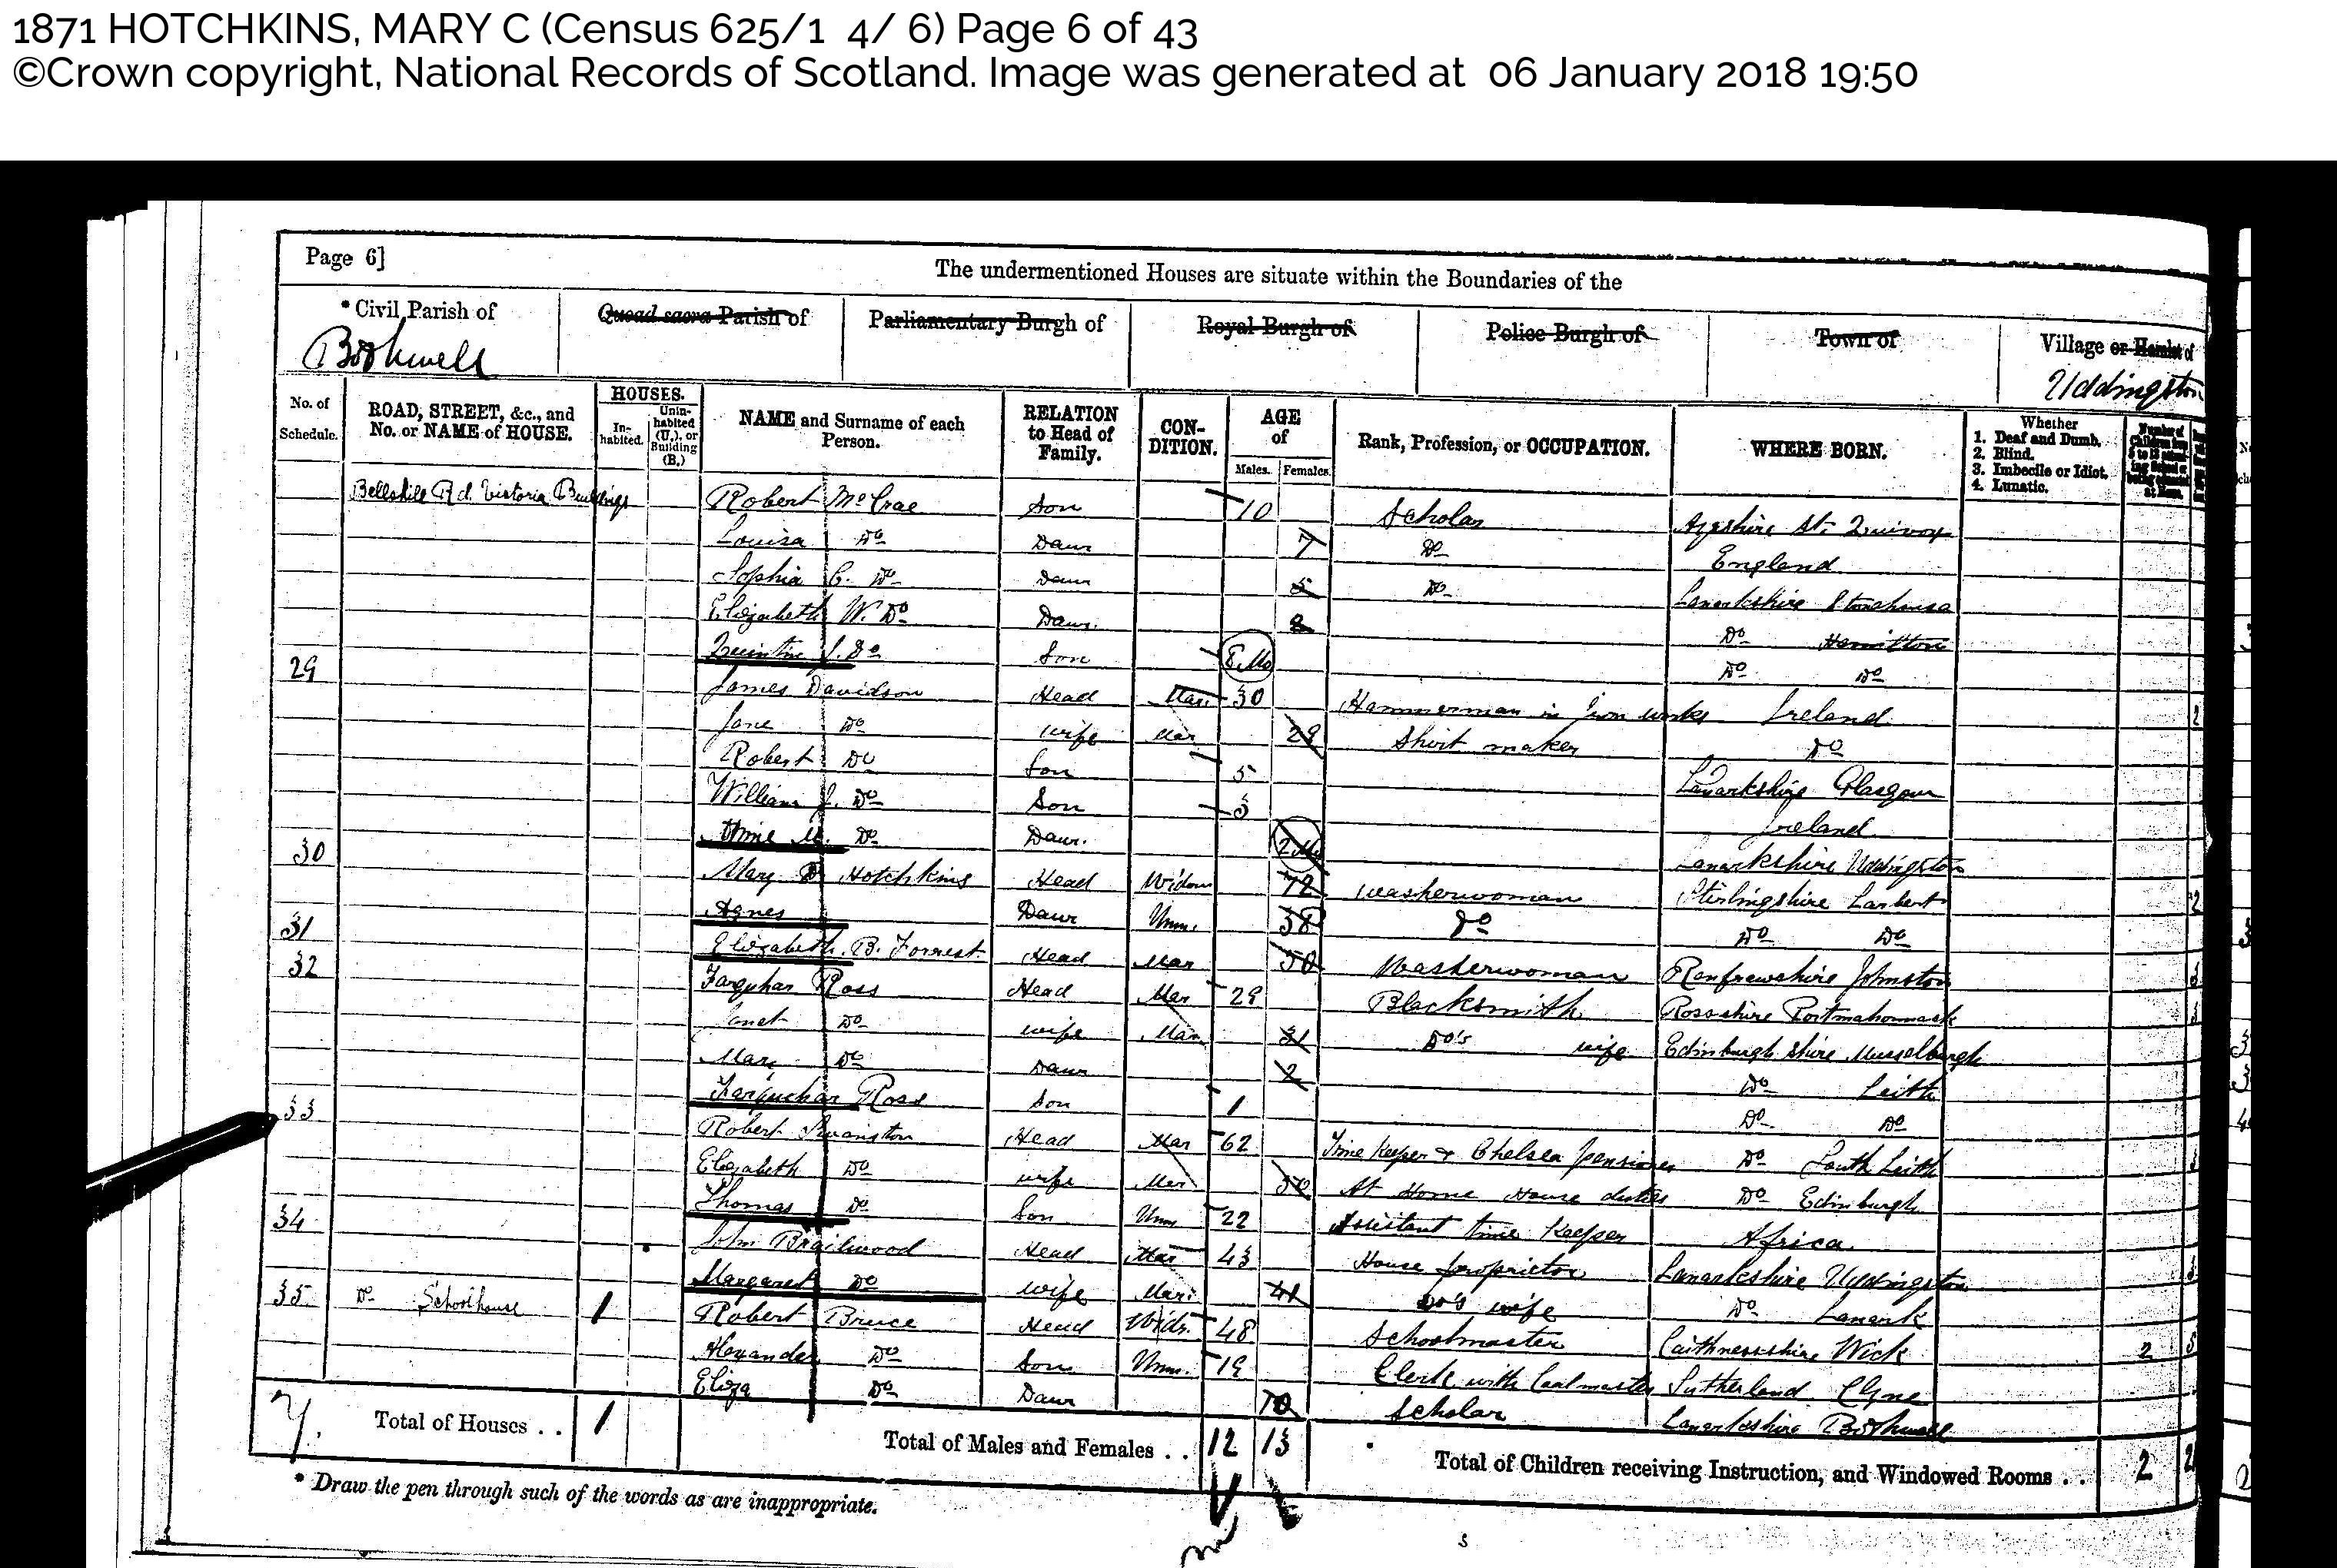 1871 HOTCHKINS, MARY C (Census 625/1 4/ 6) Page 6 of 43
©Crown copyright, National Records of Scotland. Image was generated at 06 January 2018 19:50
Page 6]
The undermentioned Houses are situate within the Boundaries of the
* Civil Parish of Quoad sacra Parish of Parliamentary Burgh of Royal Burgh of Police Burgh of Town of Village or Hamlet of
Bothwell Uddingston
No. of Schedule. ROAD, STREET, &c., and No. or NAME of HOUSE. HOUSES. In-habited. Unin-habited (U.), or Building (B.) NAME and Surname of each Person. RELATION to Head of Family. CON-DITION. AGE of Males. Females. Rank, Profession, or OCCUPATION. WHERE BORN. Whether 1. Deaf and Dumb. 2. Blind. 3. Imbecile or Idiot. 4. Lunatic.
Bellshill Rd. Victoria Buildings Robert McCrae Son 10 Scholar Ayrshire St. Quivox
Louisa Do Daur 7 Do England
Sophia C. Do Daur 5 Do Lanarkshire Stonehouse
Elizabeth W. Do Daur. Do Hamilton
Quintin J. Do Son 8 Mo Do Do
29 James Davidson Head Mar. 30 Hammerman in Iron works Ireland 2
Jane Do wife Mar 29 Shirt maker Do
Robert Do Son 5 Lanarkshire Glasgow
William J. Do Son 3 Ireland
M. Do Daur. 2 Mo Lanarkshire Uddingston
30 Mary Hotchkins Head Widow 72 washerwoman Stirlingshire Larbert 2
Agnes Daur Unm. 38 Do Do Do
31 Elizabeth B. Forrest Head Mar 50 Washerwoman Renfrewshire Johnston
32 Farquhar Ross Head Mar 29 Blacksmith Rossshire Portmahomack
Janet Do wife Mar 31 Do's wife Edinburghshire Musselburgh
Mary Do Daur 2 Do Leith
Farquhar Ross Son 1 Do Do
33 Robert Swanston Head Mar 62 Time Keeper & Chelsea pensioner Do South Leith
Elizabeth Do wife Mar 50 At Home House duties Do Edinburgh
Thomas Do Son Unm 22 Assistant time Keeper Africa
34 John Braidwood Head Mar 43 House proprietor Lanarkshire Uddingston
Margaret Do wife Mar. 41 Do's wife Do Lanark
35 Do Schoolhouse 1 Robert Bruce Head Widr. 48 Schoolmaster Caithnessshire Wick 2 5
Alexander Do Son Unm. 19 Clerk with Coalmaster Sutherland Clyne
Eliza Do Daur 10 Scholar Lanarkshire Bothwell
Total of Houses . . 1 Total of Males and Females . . 12 13 Total of Children receiving Instruction, and Windowed Rooms . . 2
* Draw the pen through such of the words as are inappropriate.